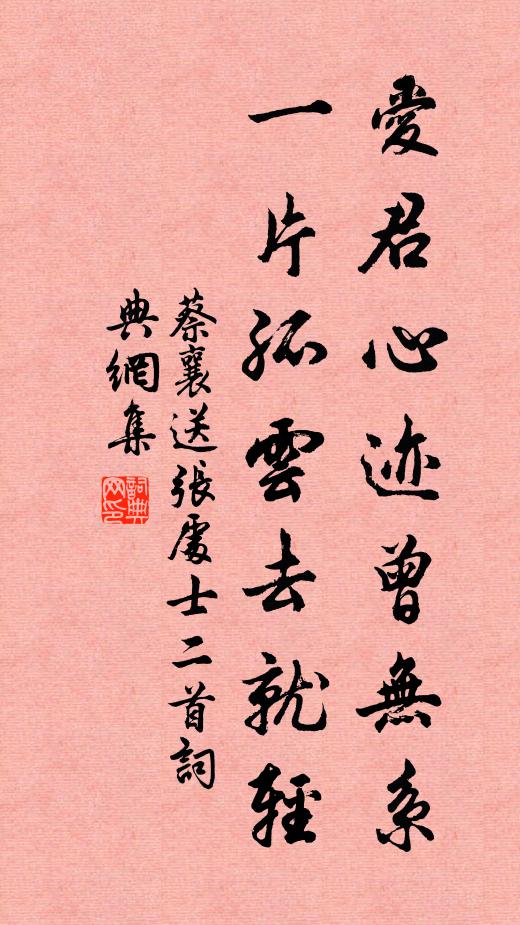 愛君心迹曾無系
一片孤雲去就輕
蔡襄送張處士二首詞
典網集
詞典
网印